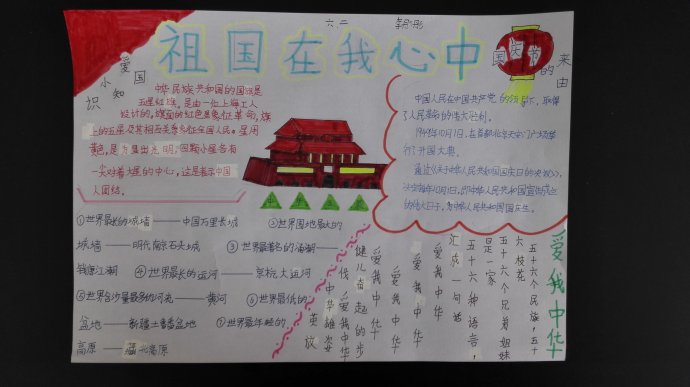 六、二
祖国在我心中
国庆节
的来由
爱国小知识
中华民族共和国的国旗是
五星红旗，是由一位上海工人
设计的，旗面的红色是象征革命，旗
上的五星及其相互关系象征全国人民。星用
黄色，是为显出光明，四颗小星各有
一尖对着大星的中心，这是表示中国
人团结。
中国人民在中国共产党的领导下，取得
了人民革命的伟大胜利。
1949年10月1日，在首都北京天安门广场举
行了开国大典。
①世界最长的城墙——中国万里长城
②世界围地最大的
城墙——明代南京石头城
③世界最著名的涌潮——
钱唐江潮
④世界最长的运河——京杭大运河
⑤世界含沙量最多的河流——黄河
⑥世界最低的
盆地——新疆土鲁番盆地
⑦世界最年轻的
高原——
爱我中华
五十六个民族，五十
六枝花
五十六个兄弟姐妹
是一家
五十六种语言，
汇成一句话
爱我中华
爱我中华
爱我中华
健儿奋起的步
伐
爱我中华
中华雄姿
英放